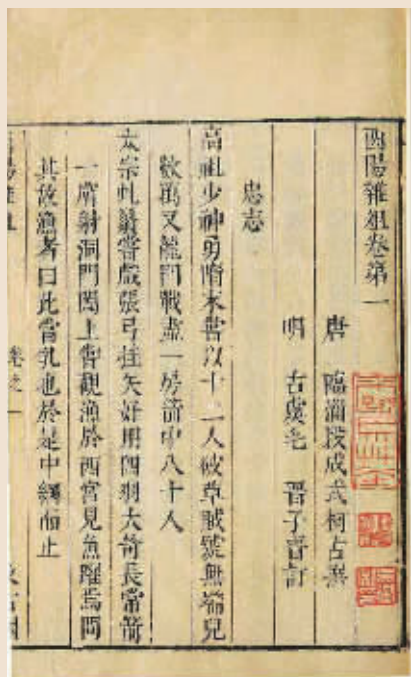 酉陽雜俎卷第一
唐 臨淄段成式柯古撰
明 古虞毛 晉子晉訂
忠志
高祖少神勇隋末嘗以十二人破草賊號無端兒
數萬又龍門戰盡一房箭中八十人
太宗虬鬚嘗戲張弓挂矢好用四羽大笴長常箭
一膚射洞門闔上嘗觀漁於西宮見魚躍焉問
其故漁者曰此當乳也於是中網而止